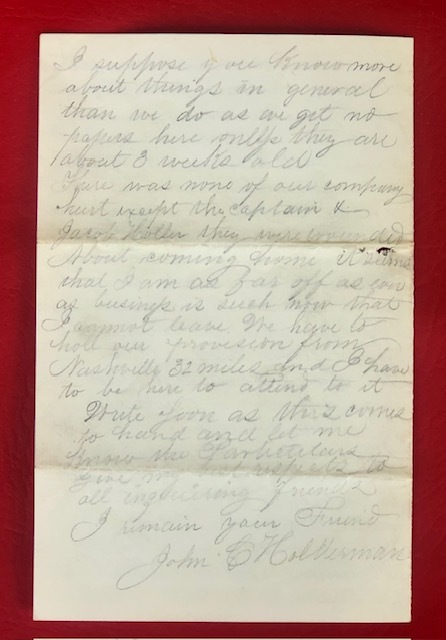 I suppose you know more
about things in general
than we do as we get no
papers here onless they are
about 3 weeks old
There was none of our company
hurt except the captain &
Jacob they were wounded
About coming home it seems
that I am as far off as ever
as business is such now that
I cannot leave We have to
holl our provision from
Nashville 32 miles and I have
to be here to attend to it
Write soon as this comes
to hand and let me
know the Particulars
Give my best respects to
all inquiering friends
I remain your Friend
John C Holtterman